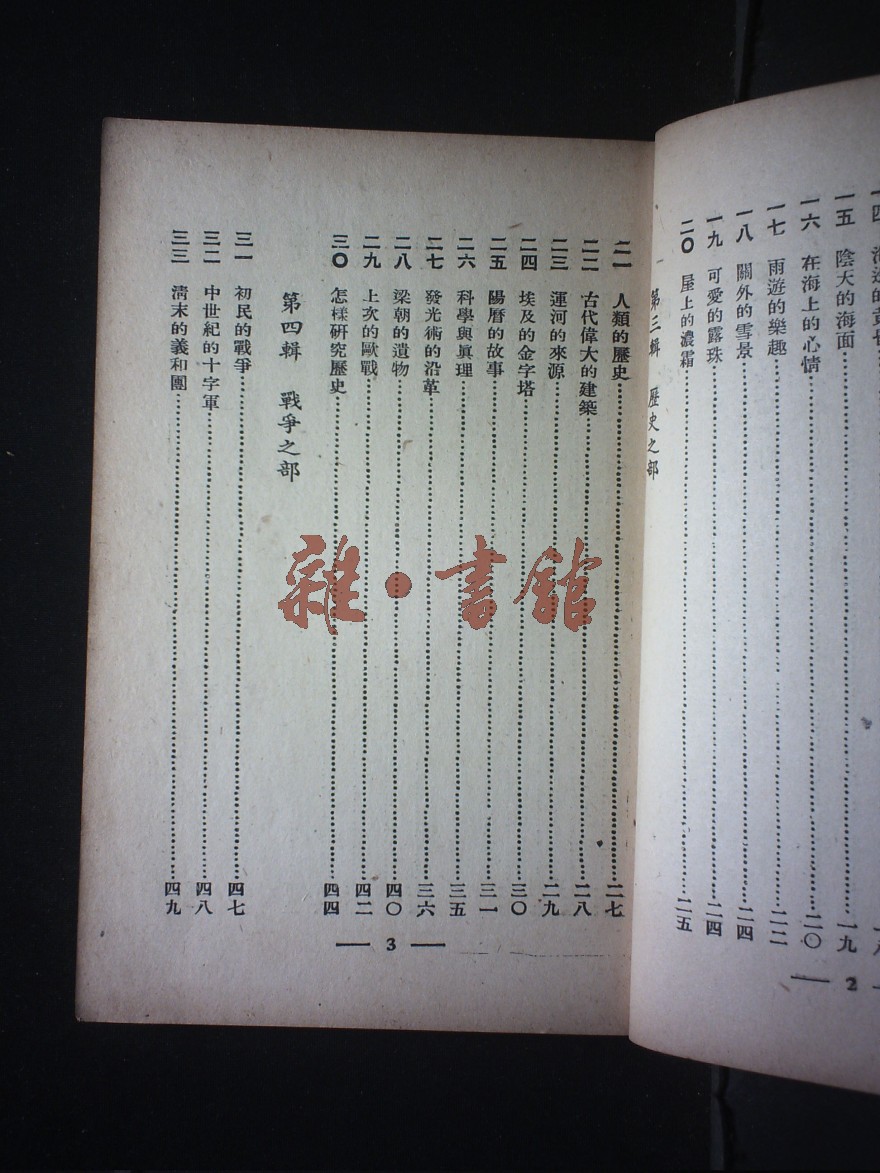 一五 陰天的海面……一九
一六 在海上的心情……二〇
一七 雨遊的樂趣……二二
一八 關外的雪景……二四
一九 可愛的露珠……二四
二〇 屋上的濃霜……二五
第三輯 歷史之部
— 2
二一 人類的歷史……二七
二二 古代偉大的建築……二八
二三 運河的來源……二九
二四 埃及的金字塔……三〇
二五 陽曆的故事……三一
二六 科學與眞理……三五
二七 發光術的沿革……三六
二八 梁朝的遺物……四〇
二九 上次的歐戰……四二
三〇 怎樣研究歷史……四四
第四輯 戰爭之部
三一 初民的戰爭……四七
三二 中世紀的十字軍……四八
三三 淸末的義和團……四九
— 3 —
雜·書館